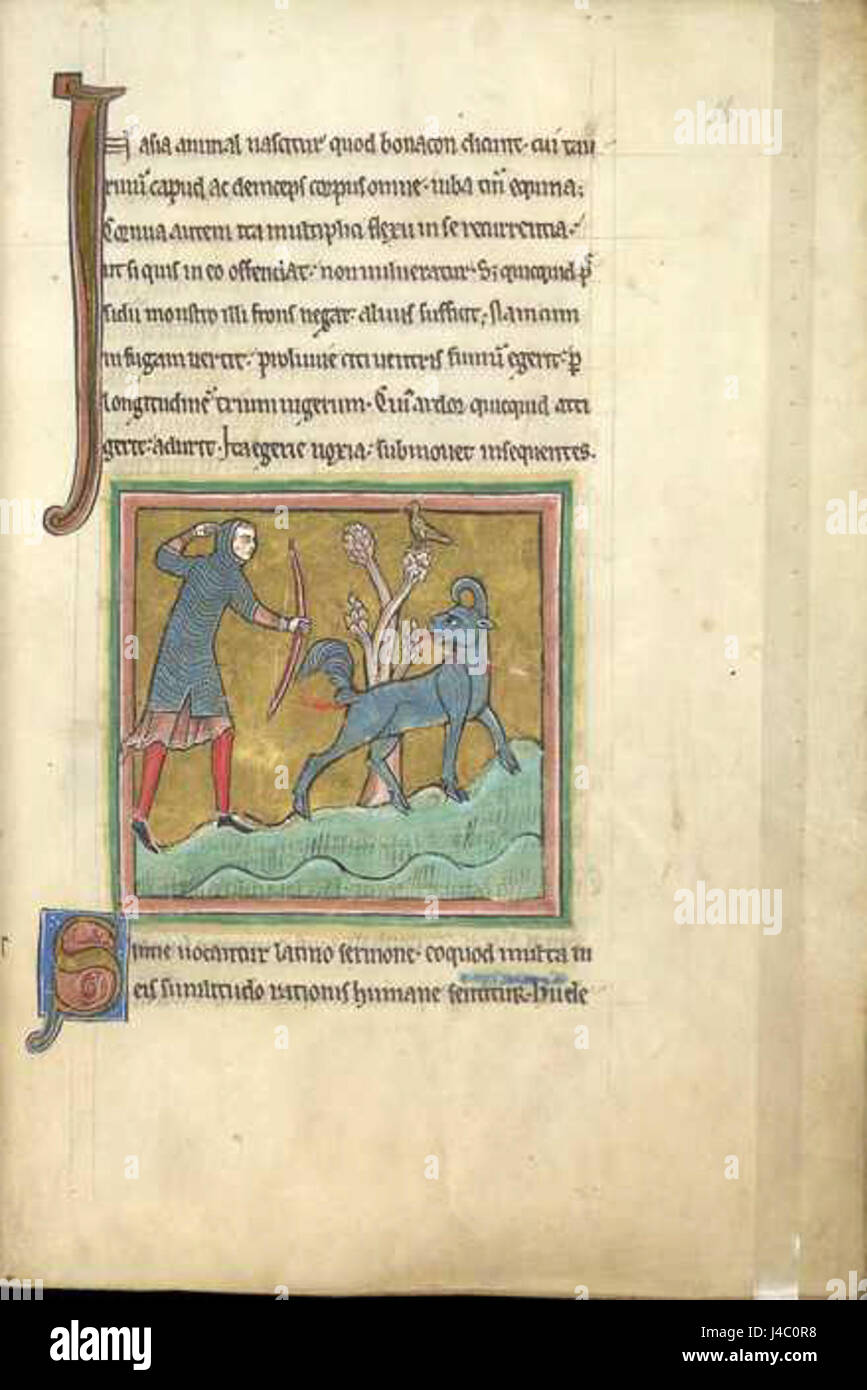 In asia animal nascitur quod bonacon dicunt. cui tau
rinū capud ac deinceps corpus omne. iuba tm̄ equina;
Cornua autem ita multiplici flexu in se recurrentia.
ut si quis in eo offendat. non vulneratur. S; quicquid p̄
sidii monstro illi frons negat. alvus sufficit; Nam cum
in fugam vertit. proluvie citi ventris fimum egerit. p
longitudinē trium iugerum. Cui᾽ ardor quicquid atti
gerit. adurit. Ita egerie noxia. submovet insequentes.
Simie vocantur latino sermone. eo quod multa in
eis similitudo rationis humane sentitur. Huele
alamy
Image ID: J4C0R8
www.alamy.com